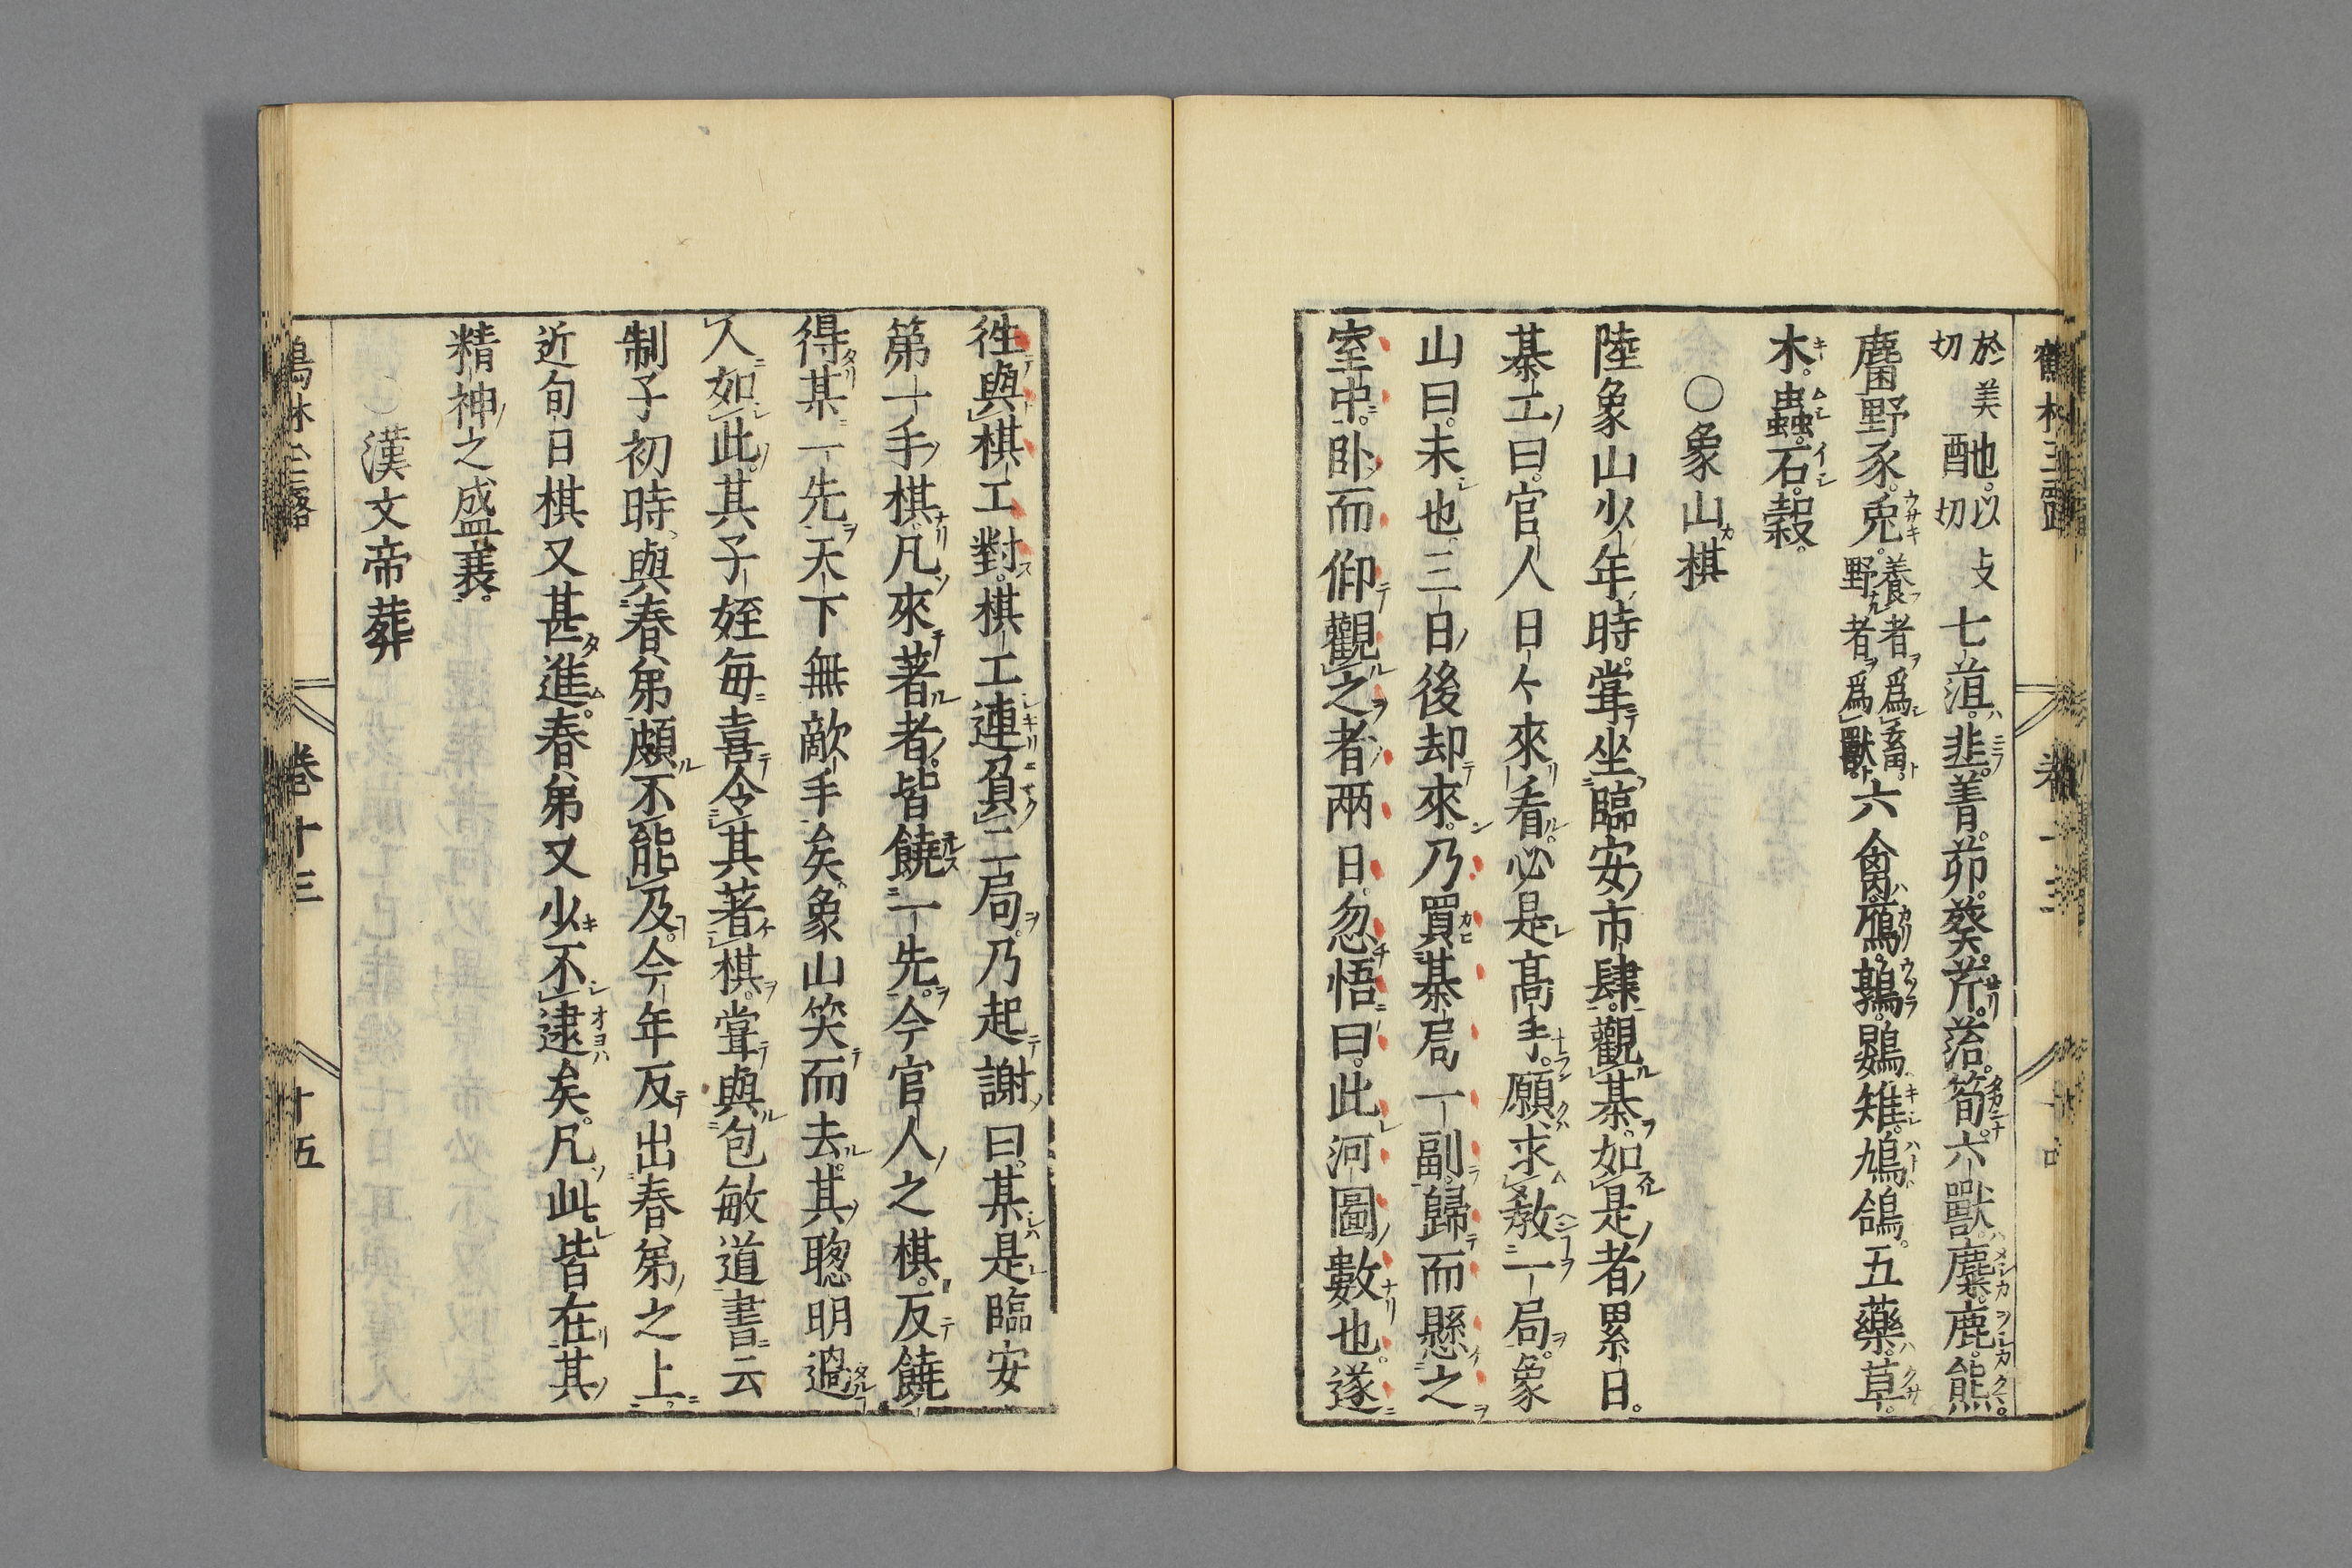 鶴林玉露　卷十三
於美也以攴
切　酏切　七菹韭菁茆葵芹菭筍六獸麋鹿熊
麕野豕兎養者爲畜野者爲獸六禽鴈鶉鷃雉鳩鴿五藥草
木蟲石穀
○象山棋
陸象山少年時甞坐臨安市肆觀棊如是者累日
棊工曰官人日日來看必是髙手願求敎一局象
山曰未也三日後却來乃買棊局一副歸而懸之
室中卧而仰觀之者兩日忽悟曰此河圖數也遂
徃與棋工對棋工連負二局乃起謝曰某是臨安
第一手棋凡來著者皆饒一先今官人之棋反饒
得某一先天下無敵手矣象山笑而去其聦明過
人如此其子姪每喜令其著棋甞與包敏道書云
制子初時與春弟頗不能及今年反出春弟之上
近旬日棋又甚進春弟又少不逮矣凡此皆在其
精神之盛衰
○漢文帝葬
卷十三　十五